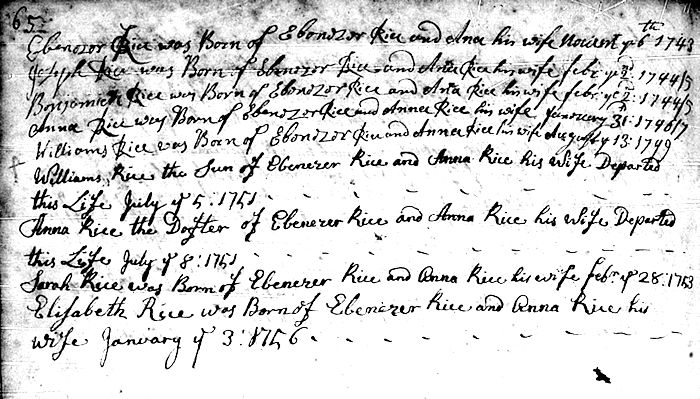 65
Ebenezer Rice was Born of Ebenezer Rice and Ana his wife Novem ye 6th 1743
Joseph Rice was Born of Ebenezer Rice and Ana Rice his wife febr. ye 2d 1744/5
Benjamin Rice was Born of Ebenezer Rice and Ana Rice his wife febr. ye 2d 1744/5
Anna Rice was Born of Ebenezer Rice and Anna Rice his wife January 31: 1746/7
Williams Rice was Born of Ebenezer Rice and Anna Rice his wife August ye 13: 1749
Williams Rice the Sun of Ebenezer Rice and Anna Rice his Wife Departed
this Life July ye 5: 1751
Anna Rice the Dofter of Ebenezer Rice and Anna Rice his Wife Departed
this Life July ye 8: 1751
Sarah Rice was Born of Ebenezer Rice and Anna Rice his wife febr. ye 28: 1753
Elisabeth Rice was Born of Ebenezer Rice and Anna Rice his
wife January ye 3: 1756